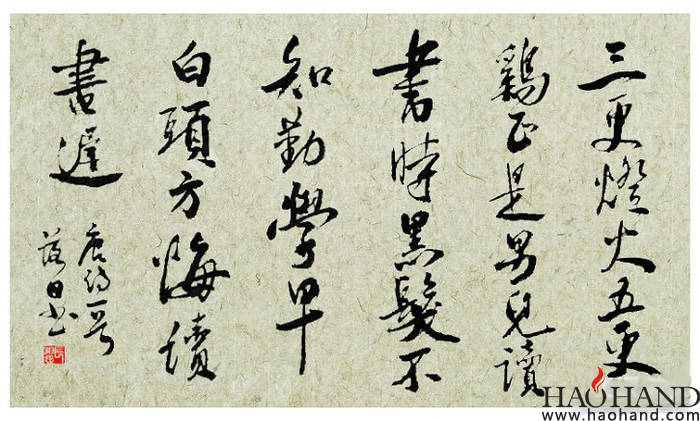 三更燈火五更
鷄正是男兒讀
書時黑髮不
知勤學早
白頭方悔讀
書遲
唐詩一首
HAOHAND
www.haohand.com